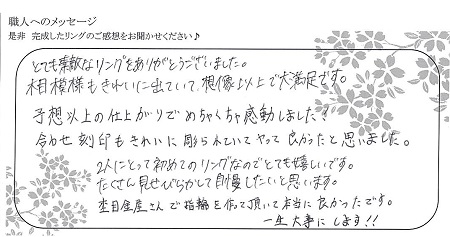 職人へのメッセージ
是非 完成したリングのご感想をお聞かせください♪
とても素敵なリングをありがとうございました。
木目模様もきれいに出ていて、想像以上で大満足です。
予想以上の仕上がりでめちゃくちゃ感動しました!
合わせ刻印もきれいに彫られていてやって良かったと思いました。
2人にとって初めてのリングなのでとても嬉しいです。
たくさん見せびらかして自慢したいと思います。
杢目金屋さんで指輪を作って頂いて本当に良かったです。
一生大事にします!!